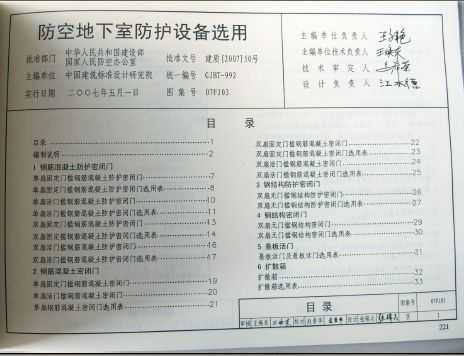 防空地下室防护设备选用
批准部门 中华人民共和国建设部
国家人民防空办公室
批准文号 建质[2007]50号
主编单位 中国建筑标准设计研究院
统一编号 GJBT-992
实行日期 二〇〇七年五月一日
图集号 07FJ03
主编单位负责人
主编单位技术负责人
技术审定人
设计负责人
目录
目录 1
编制说明 2
1 钢筋混凝土防护密闭门
单扇固定门槛钢筋混凝土防护密闭门 7
单扇固定门槛钢筋混凝土防护密闭门选用表 8
单扇活门槛钢筋混凝土防护密闭门 10
单扇活门槛钢筋混凝土防护密闭门选用表 11
双扇固定门槛钢筋混凝土防护密闭门 13
双扇固定门槛钢筋混凝土防护密闭门选用表 14
双扇活门槛钢筋混凝土防护密闭门 16
双扇活门槛钢筋混凝土防护密闭门选用表 17
2 钢筋混凝土密闭门
单扇固定门槛钢筋混凝土密闭门 19
单扇活门槛钢筋混凝土密闭门 20
单扇活门槛钢筋混凝土密闭门选用表 21
双扇固定门槛钢筋混凝土密闭门 22
双扇固定门槛钢筋混凝土密闭门选用表 23
双扇活门槛钢筋混凝土密闭门 24
双扇活门槛钢筋混凝土密闭门选用表 25
3 钢结构防护密闭门
双扇无门槛钢结构防护密闭门 26
双扇无门槛钢结构防护密闭门选用表 27
4 钢结构密闭门
双扇无门槛钢结构密闭门 29
双扇无门槛钢结构密闭门选用表 30
5 悬板活门
悬板活门及悬板活门选用表 31
6 扩散箱
扩散箱 32
扩散箱选用表 33
目录
图集号 07FJ03
页 1
221